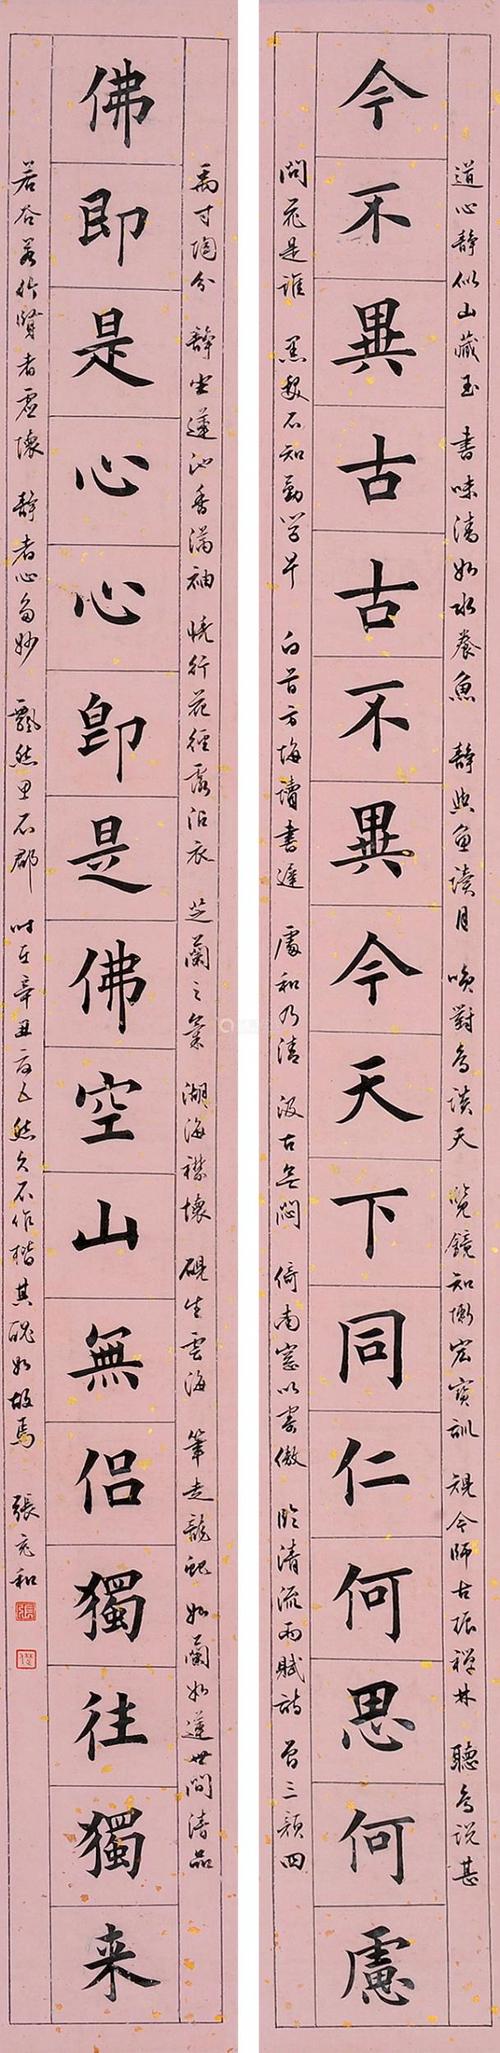 道心静似山藏玉 書味清如水養魚 静與魚讀月 喚對鳥談天 覽鏡知慚宏寶訓 視今師古振禅林 聽鳥説甚
今不異古古不異今天下同仁何思何慮
問花是誰 黑髮不知勤學早 白首方悔讀書遲 處和乃清 汲古無悶 倚南窓以寄傲 臨清流而賦詩 曾三顔四
禹寸陶分 静坐蓮池香滿袖 曉行花徑露沾衣 芝蘭之氣 湖海襟懷 硯生雲海 筆走龍蛇 如蘭如蓮世間清品
佛即是心心即是佛空山無侣獨往獨来
若谷若竹賢者虚懷 静者心多妙 飄然思不群 时在辛丑 然久不作楷其醜如故焉 張充和